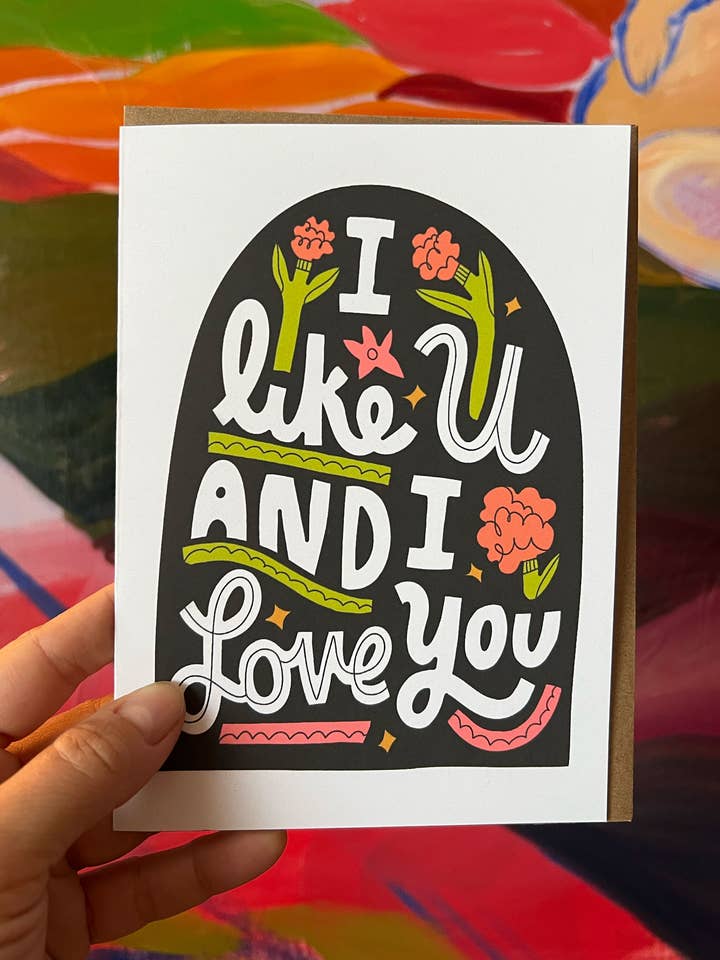 I
like U
AND I
Love You